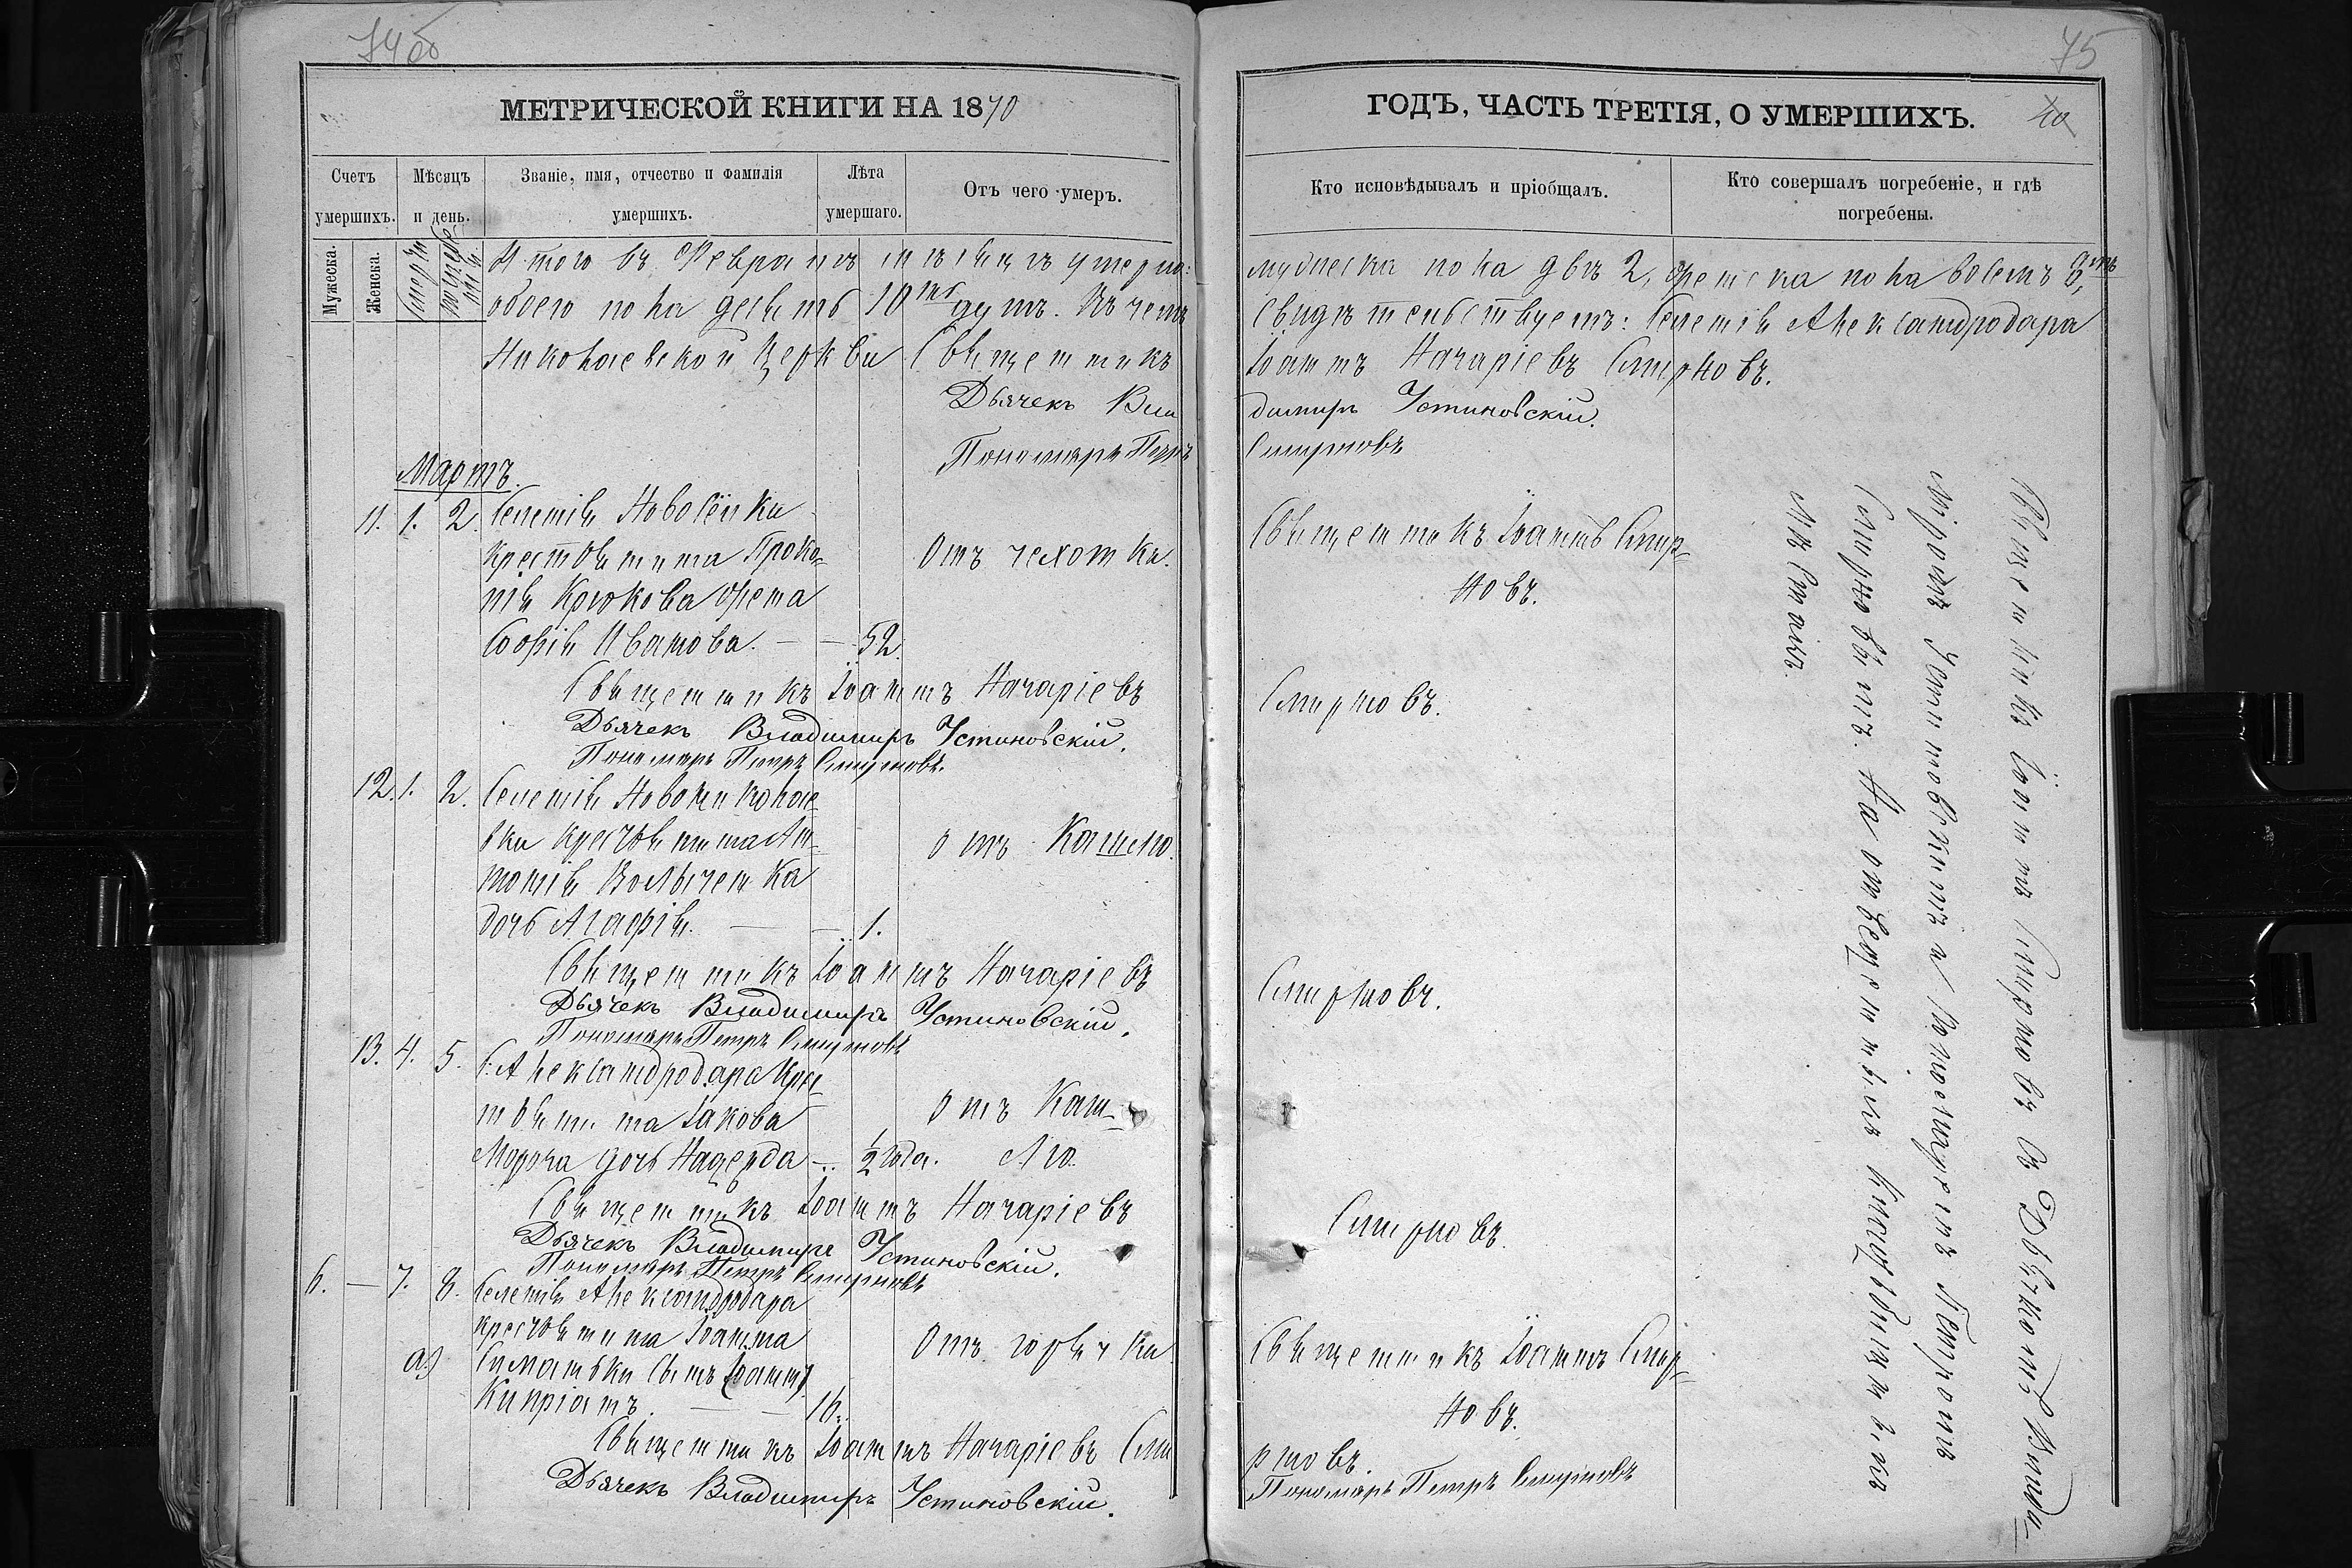 74об
МЕТРИЧЕСКОЙ КНИГИ НА 1870
Счетъ умершихъ.
Мѣсяцъ и день.
Званіе, имя, отчество и фамилія умершихъ.
Лѣта умершаго.
Отъ чего умеръ.
Мужеска.
Женска.
Смерти
погребенія
Итого въ Февралѣ мѣсяцѣ умерло:
обоего пола десять 10ть душъ. Въ чемъ
Николаевской Церкви Священникъ
Дьячекъ Вла
Пономарь Петръ
Мартъ.
11. 1. 2. Селенія Новосёлки
крестьянина Проко-
пія Крюкова жена
Софія Иванова. — — 52.
Отъ чехотки.
Священникъ Іоаннъ Назаріевъ
Дьячекъ Владимиръ Устиновскій.
Пономарь Петръ Смирновъ.
12. 1. 2. Селенія Новониколае-
вки крестьянина Ан-
тонія Волыченка
дочь Агафія. — — 1.
отъ Кашлю.
Священникъ Іоаннъ Назаріевъ
Дьячекъ Владимиръ Устиновскій.
Пономарь Петръ Смирновъ
13. 4. 5. С. Александродара крес-
тьянина Іакова
Мороза дочь Надежда — 1/2 года.
отъ Каш-
лю.
Священникъ Іоаннъ Назаріевъ
Дьячекъ Владимиръ Устиновскій.
Пономарь Петръ Смирновъ
6. — 7. 8. Селенія Александродара
крестьянина Іоанна
Симатки сынъ (Іоаннъ)
а)
Кипріанъ. — — 16.
Отъ горячки
Священникъ Іоаннъ Назаріевъ Сми
Дьячекъ Владимиръ Устиновскій.
75
ГОДЪ, ЧАСТЬ ТРЕТІЯ, О УМЕРШИХЪ.
Кто исповѣдывалъ и пріобщалъ.
Кто совершалъ погребеніе, и гдѣ погребены.
мужеска пола двѣ 2, женска пола восемъ 8, душъ
Свидѣтельствуемъ: Селенія Александродара
Іоаннъ Назаріевъ Смирновъ.
димиръ Устиновскій.
Смирновъ
Священникъ Іоаннъ Смир-
новъ.
Смирновъ.
Смирновъ.
Смирновъ.
Священникъ Іоаннъ Смир-
новъ.
рновъ.
Пономарь Петръ Смирновъ
Священникъ Іоаннъ Смирновъ съ Дьячкомъ Влади-
міромъ Устиновскимъ и Пономаремъ Петромъ
Смирновымъ. На отведенномъ кладбищѣ